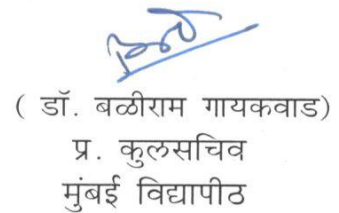 ( डॉ. बळीराम गायकवाड)
प्र. कुलसचिव
मुंबई विद्यापीठ